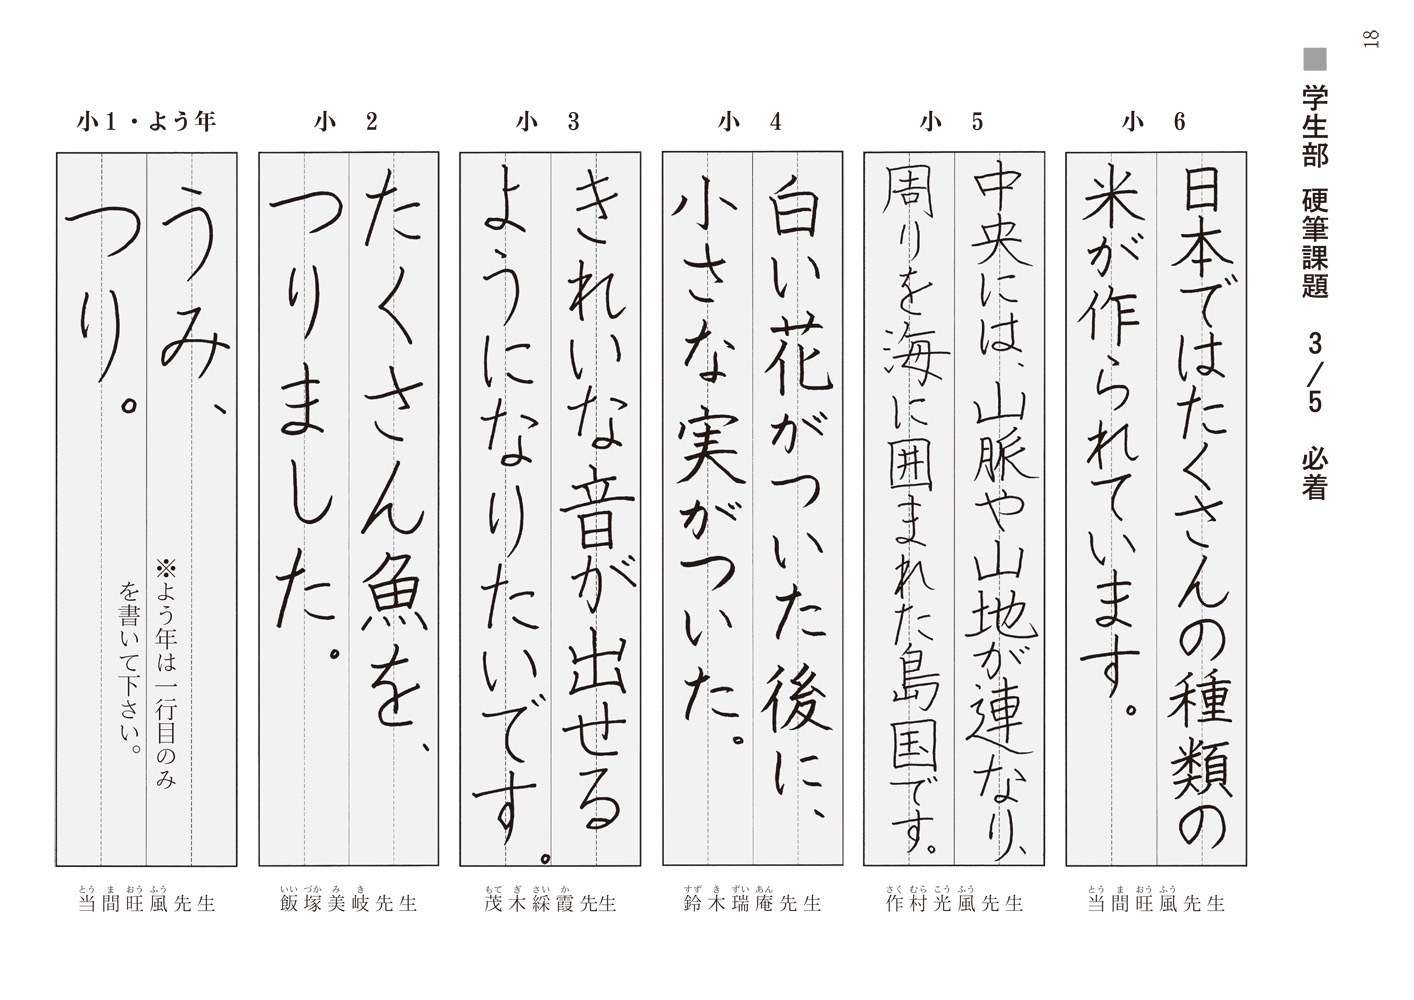 18
■学生部 硬筆課題 3/5 必着
小 6
日本ではたくさんの種類の
米が作られています。
当間旺風先生
とう ま おう ふう
小 5
中央には、山脈や山地が連なり、
周りを海に囲まれた島国です。
作村光風先生
さく むら こう ふう
小 4
白い花がついた後に、
小さな実がついた。
鈴木瑞庵先生
すず き ずい あん
小 3
きれいな音が出せる
ようになりたいです。
茂木綵霞先生
もて ぎ さい か
小 2
たくさん魚を、
つりました。
飯塚美岐先生
いい づか み き
小1・よう年
うみ、
つり。
※よう年は一行目のみ
を書いて下さい。
当間旺風先生
とう ま おう ふう